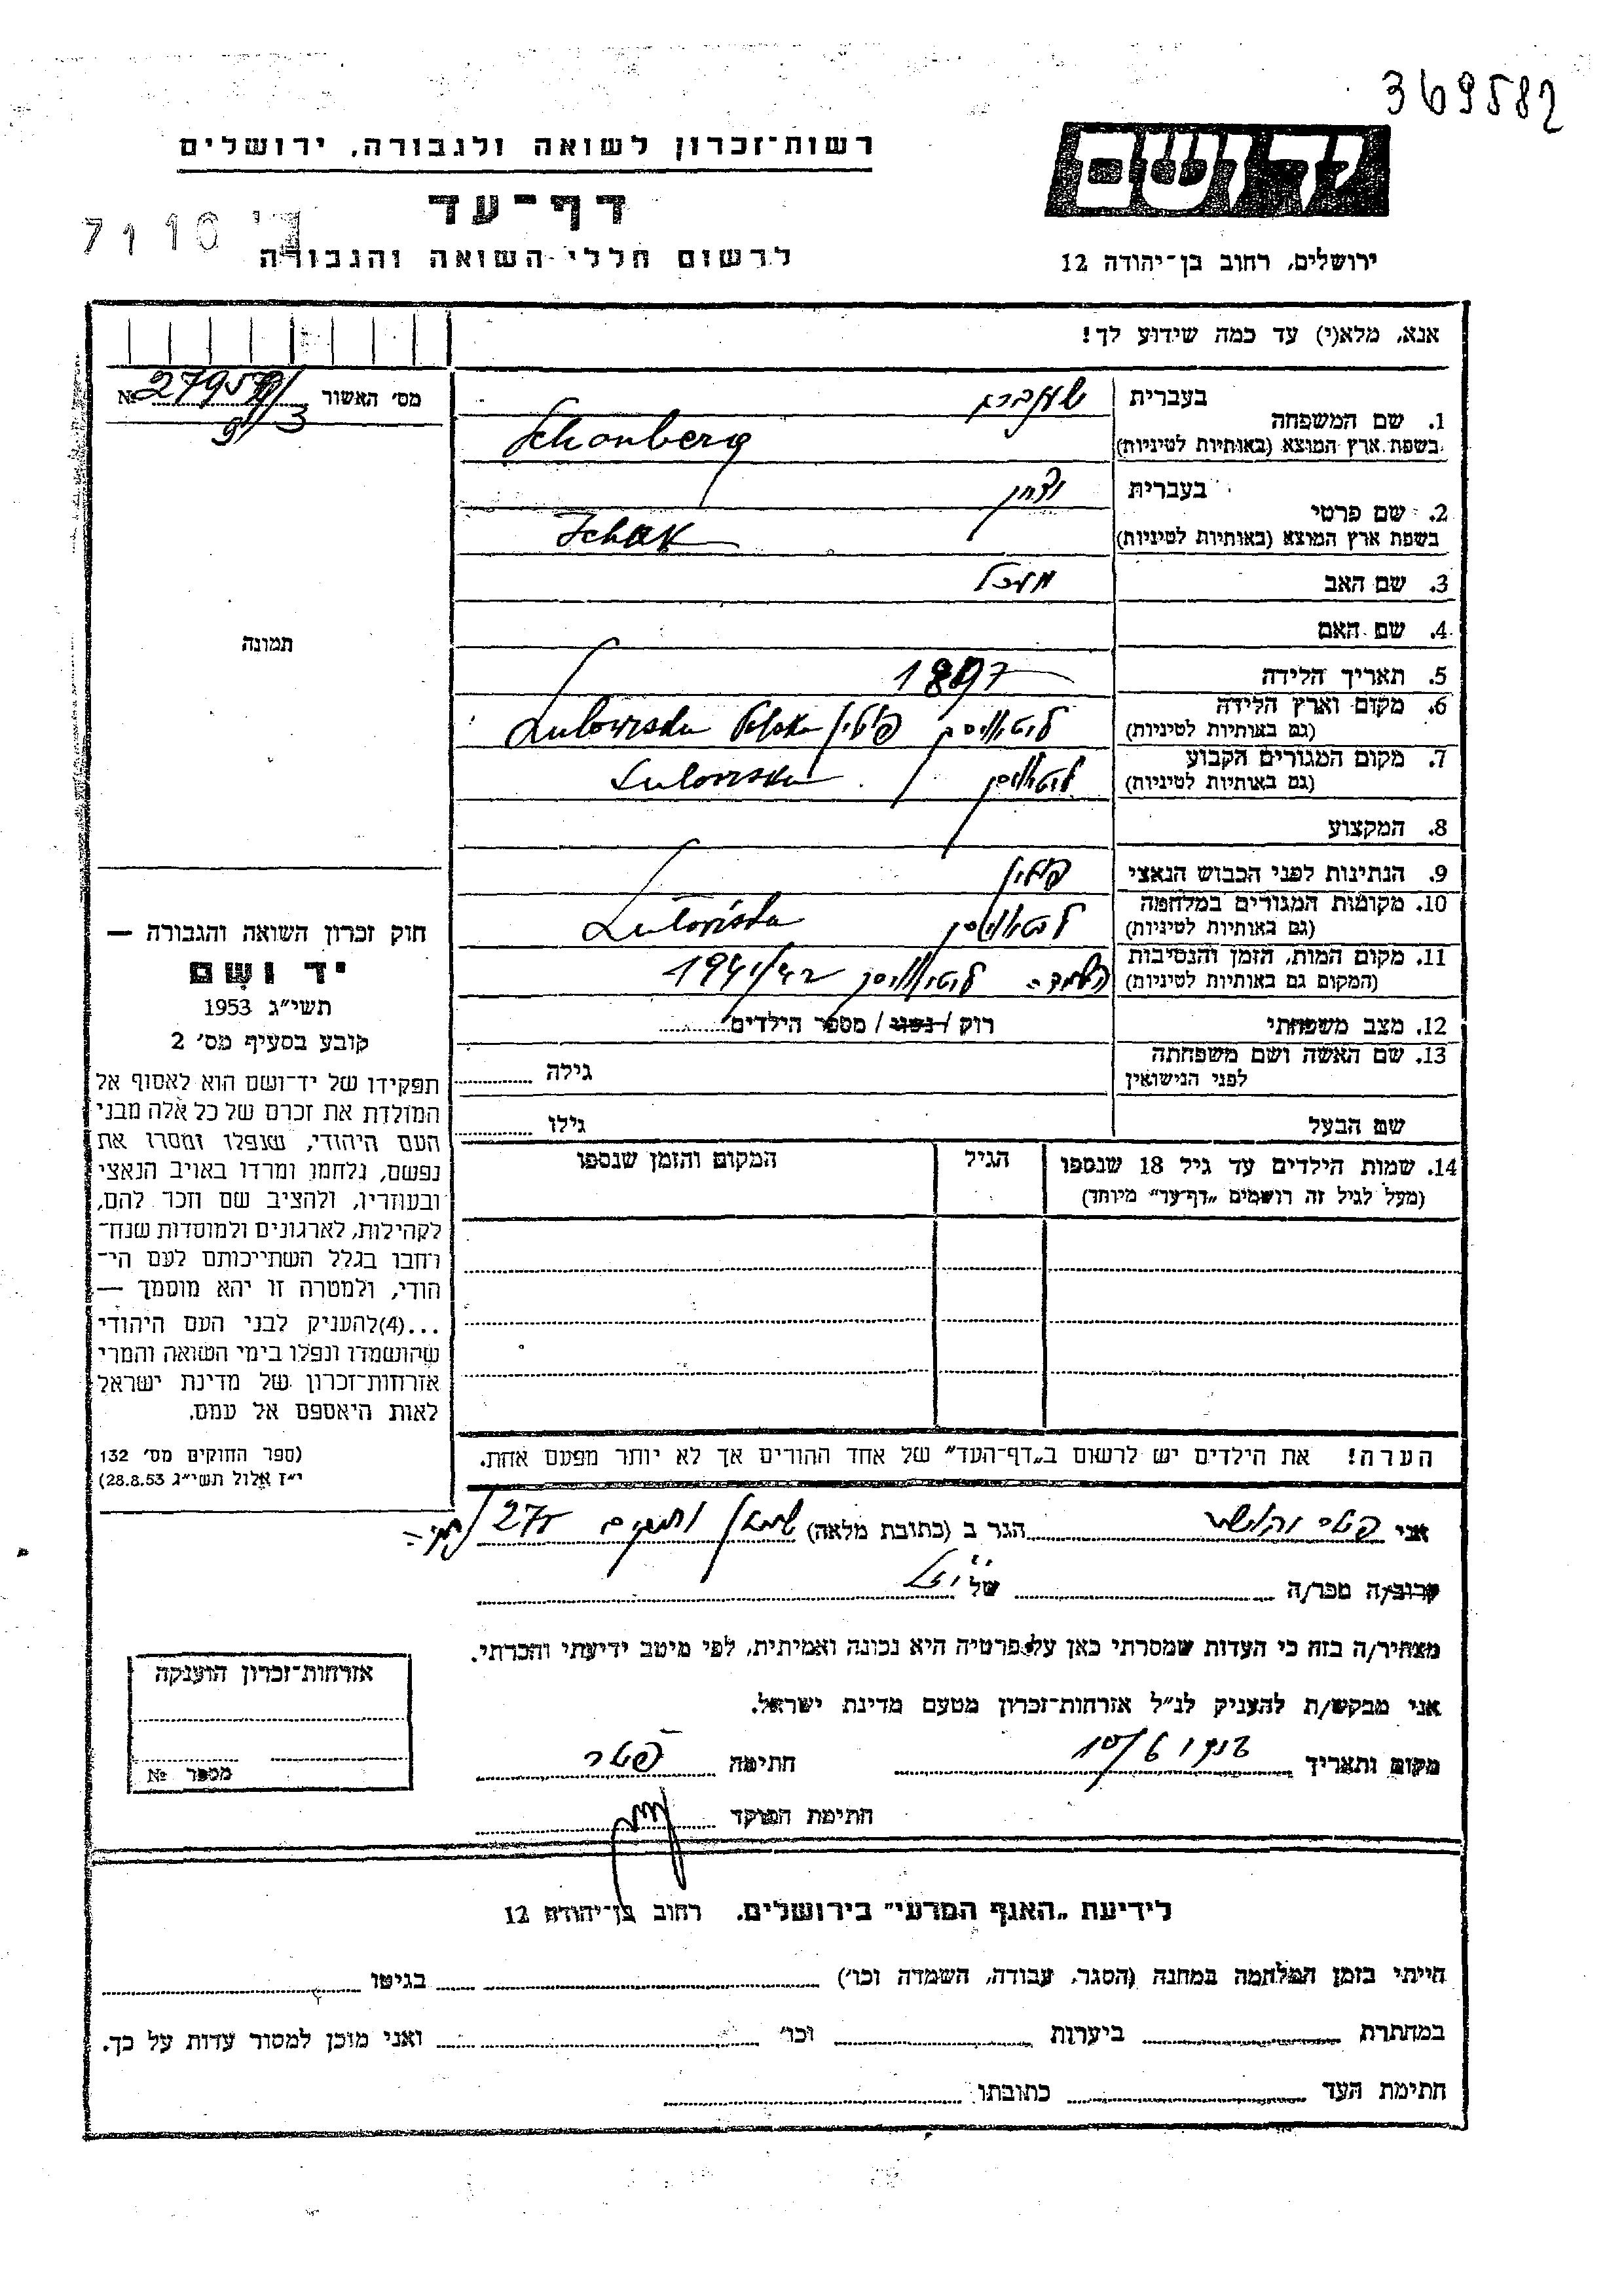 369582
רשות־זכרון לשואה ולגבורה, ירושלים
ידושם
דף־עד
7110
לרשום חללי השואה והגבורה
ירושלים, רחוב בן־יהודה 12
אנא, מלא(י) עד כמה שידוע לך!
מס׳ האשור №
1. שם המשפחה
בעברית
בשפת ארץ המוצא (באותיות לטיניות) Schonberg
2. שם פרטי
בעברית יצחק
בשפת ארץ המוצא (באותיות לטיניות) Ichak
3. שם האב
4. שם האם
5. תאריך הלידה 1897
6. מקום וארץ הלידה
(גם באותיות לטיניות) פולין
7. מקום המגורים הקבוע
(גם באותיות לטיניות)
8. המקצוע
9. הנתינות לפני הכבוש הנאצי פולין
10. מקומות המגורים במלחמה
(גם באותיות לטיניות)
11. מקום המות, הזמן והנסיבות
(המקום גם באותיות לטיניות) 1941/42
12. מצב משפחתי רוק / נשוי / מספר הילדים
13. שם האשה ושם משפחתה
לפני הנישואין גילה
שם הבעל גילו
14. שמות הילדים עד גיל 18 שנספו הגיל המקום והזמן שנספו
(מעל לגיל זה רושמים „דף־עד״ מיוחד)
הערה! את הילדים יש לרשום ב„דף־העד״ של אחד ההורים אך לא יותר מפעם אחת.
תמונה
חוק זכרון השואה והגבורה —
יד ושם
תשי״ג 1953
קובע בסעיף מס׳ 2
תפקידו של יד־ושם הוא לאסוף אל
המולדת את זכרם של כל אלה מבני
העם היהודי, שנפלו ומסרו את
נפשם, נלחמו ומרדו באויב הנאצי
ובעוזריו, ולהציב שם וזכר להם,
לקהילות, לארגונים ולמוסדות שנח־
רבו בגלל השתייכותם לעם הי־
הודי, ולמטרה זו יהא מוסמך —
...(4)להעניק לבני העם היהודי
שהושמדו ונפלו בימי השואה והמרי
אזרחות־זכרון של מדינת ישראל
לאות היאספם אל עמם.
(ספר החוקים מס׳ 132
י״ז אלול תשי״ג 28.8.53)
אני הגר ב (כתובת מלאה) 27
קרוב/ה מכר/ה של
מצהיר/ה בזה כי העדות שמסרתי כאן על פרטיה היא נכונה ואמיתית, לפי מיטב ידיעתי והכרתי.
אני מבקש/ת להעניק לנ״ל אזרחות־זכרון מטעם מדינת ישראל.
מקום ותאריך חתימה
חתימת הפוקד
אזרחות־זכרון הוענקה
מספר №
לידיעת „האגף המדעי״ בירושלים. רחוב בן־יהודה 12
הייתי בזמן המלחמה במחנה (הסגר, עבודה, השמדה וכו׳) בגיטו
במחתרת ביערות וכו׳ ואני מוכן למסור עדות על כך.
חתימת העד כתובתו